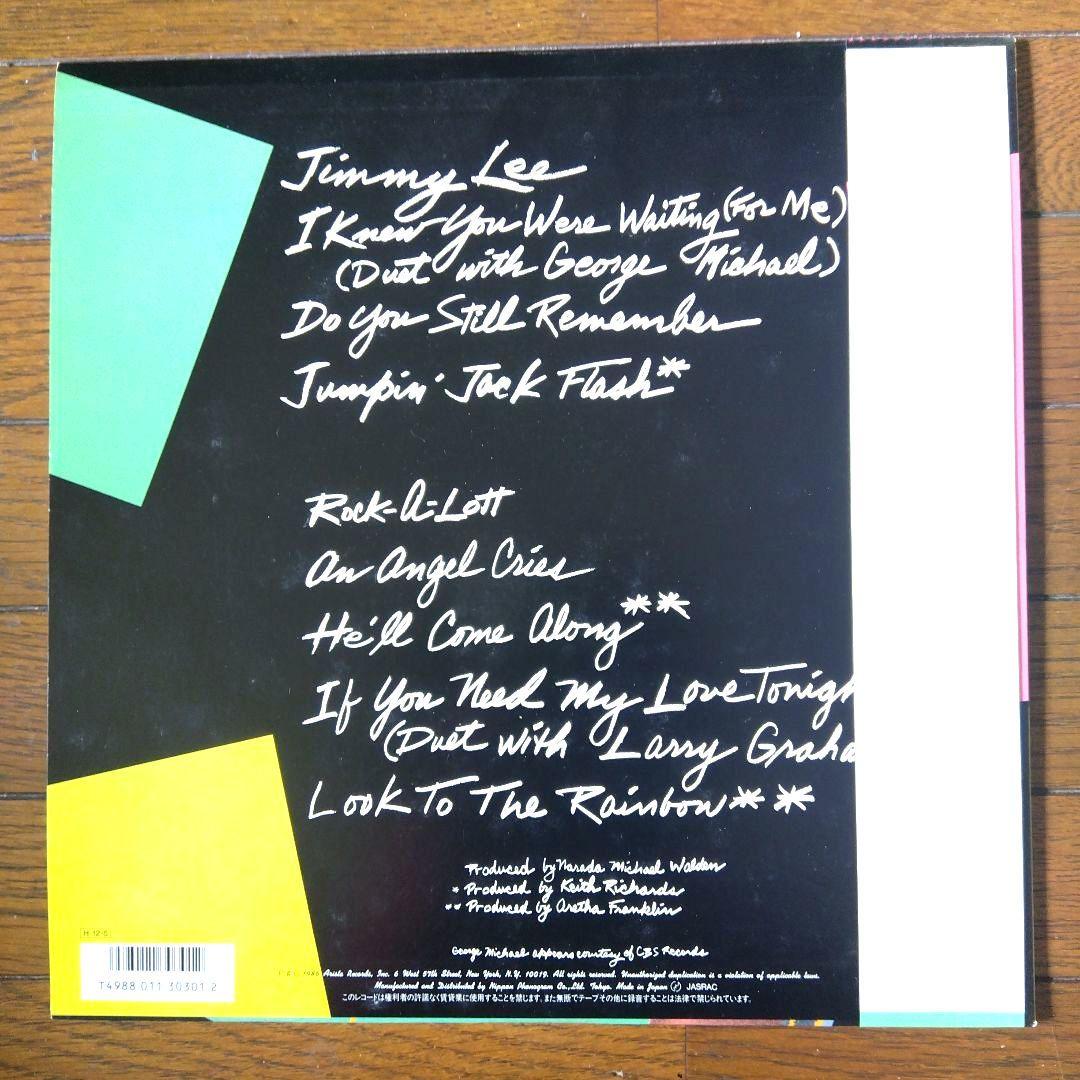 Jimmy Lee
I Knew You Were Waiting (For Me)
(Duet with George Michael)
Do You Still Remember
Jumpin' Jack Flash*
Rock-A-Lott
An Angel Cries
He'll Come Along**
If You Need My Love Tonigh
(Duet with Larry Graha
Look To The Rainbow**
Produced by Narada Michael Walden
* Produced by Keith Richards
** Produced by Aretha Franklin
George Michael appears courtesy of CBS Records
1986 Arista Records, Inc. 6 West 57th Street, New York, N.Y. 10019. All rights reserved. Unauthorized duplication is a violation of applicable laws.
Manufactured and Distributed by Nippon Phonogram Co., Ltd. Tokyo. Made in Japan Ⓟ JASRAC
このレコードは権利者の許諾なく賃貸業に使用することを禁じます。また無断でテープその他に録音することは法律で禁じられています。
H·12·5
T4988 011 30301 2